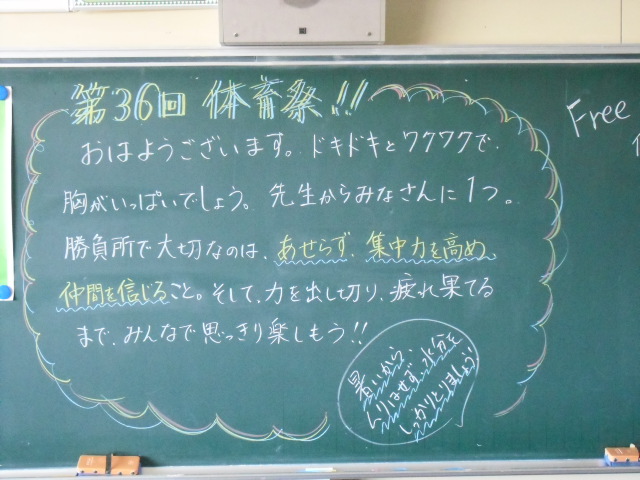 第36回 体育祭!!
おはようございます。ドキドキとワクワクで、
胸がいっぱいでしょう。先生からみなさんに1つ。
勝負所で大切なのは、あせらず、集中力を高め
仲間を信じること。そして、力を出し切り、疲れ果てる
まで、みんなで思っきり楽しもう!!
暑いから、
ムリはせず、水分を
しっかりとりましょう!
Free